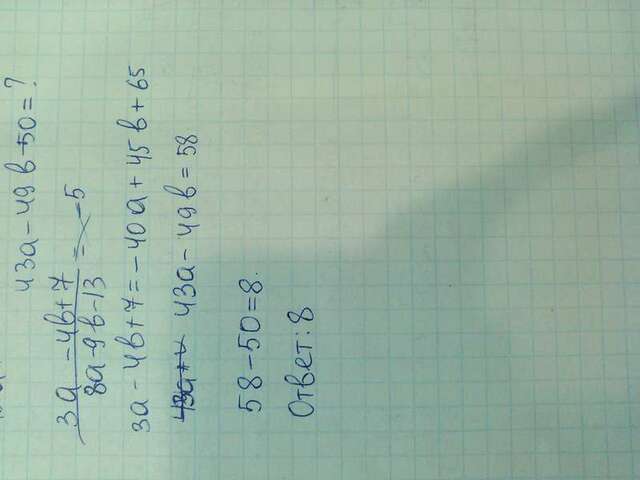 43a - 49b - 50 = ?
3a - 4b + 7
8a - 9b - 13 = -5
3a - 4b + 7 = -40a + 45b + 65
43a - 49b = 58
58 - 50 = 8.
Ответ: 8